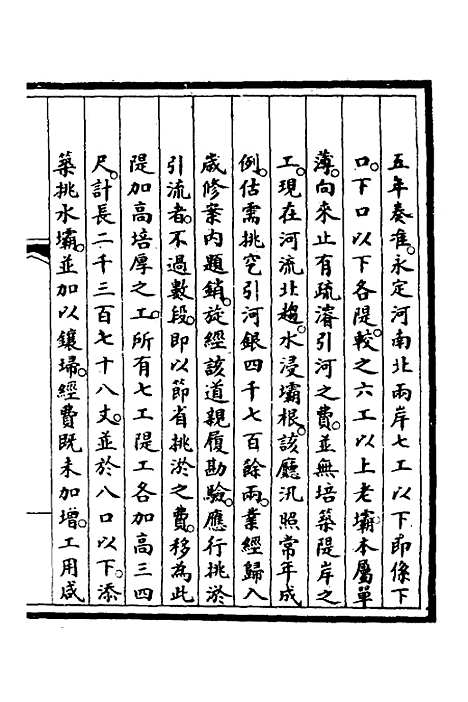 五年奏准。永定河南北兩岸七工以下。即係下
口。下口以下各隄。較之六工以上老壩。本屬單
薄。向來止有疏濬引河之費。並無培築隄岸之
工。現在河流北趨。水浸壩根。該廳汛照常年成
例。估需挑穵引河銀四千七百餘兩。業經歸入
歲修案內題銷。旋經該道親履勘驗。應行挑淤
引流者。不過數段。即以節省挑淤之費。移為此
隄加高培厚之工。所有七工隄工各加高三四
尺。計長二千三百七十八丈。並於八口以下。添
築挑水壩。並加以鑲埽。經費既未加增。工用咸